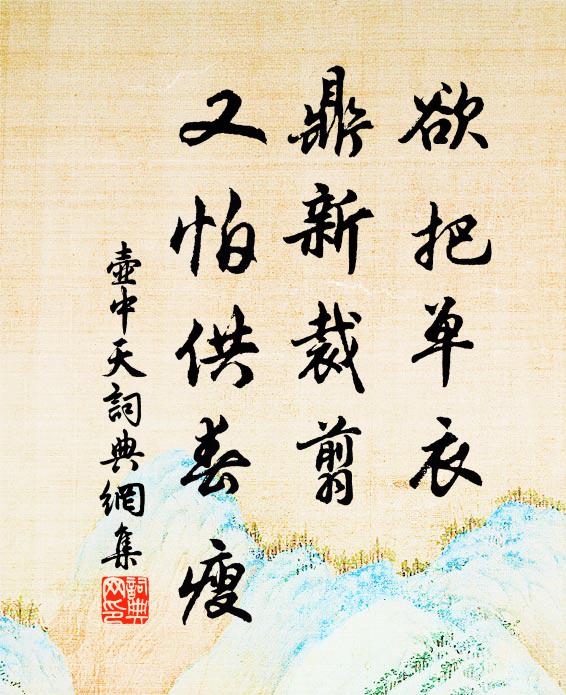 欲把单衣
鼎新裁剪
又怕供春瘦
壶中天词典網集
詞典网印